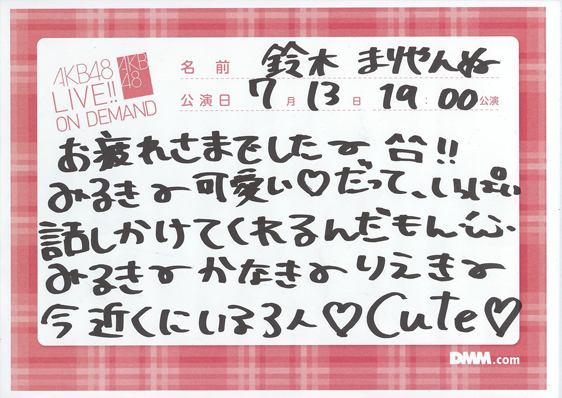 AKB48
LIVE!!
ON DEMAND
AKB
48
名前 鈴木 まりやんぬ
公演日 7月13日 19:00公演
お疲れさまでした〜 台!!
みるき〜可愛い♡だって、いっぱい
話しかけてくれるんだもん
みるき〜かなき〜りえき〜
今近くにいる3人♡Cute♡
DMM.com